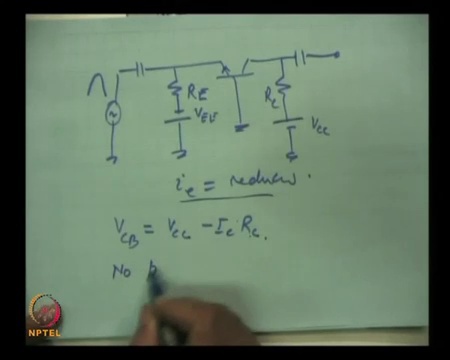 RE
VEE
RC
VCC
ie = reduces.
VCB = VCC - IC RC.
No
NPTEL